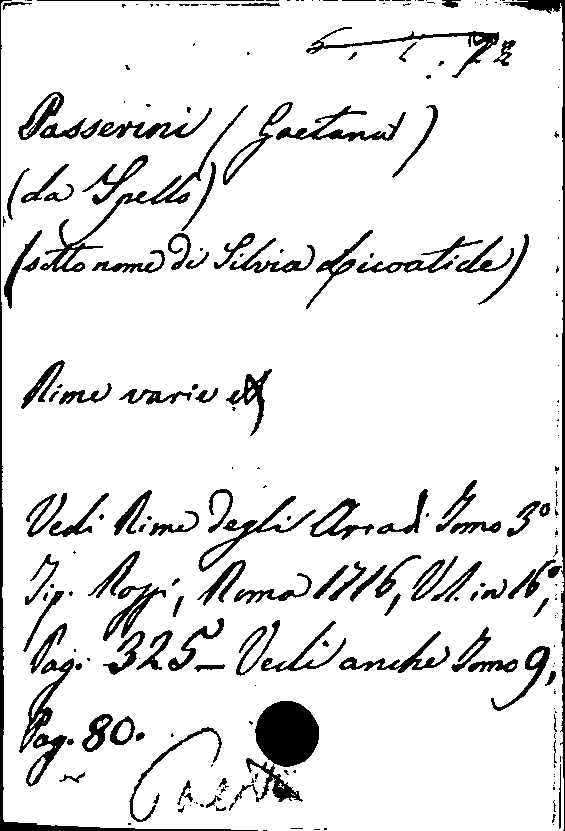 Passerini (Gaetana)
(da Spello)
(sotto nome di Silvia Licoatide)
Rime varie
Vedi Rime degli Arcadi Tomo 3º
Tip. Rossi, Roma 1716, Vol. in 16º,
Pag. 325 - Vedi anche Tomo 9,
Pag. 80.